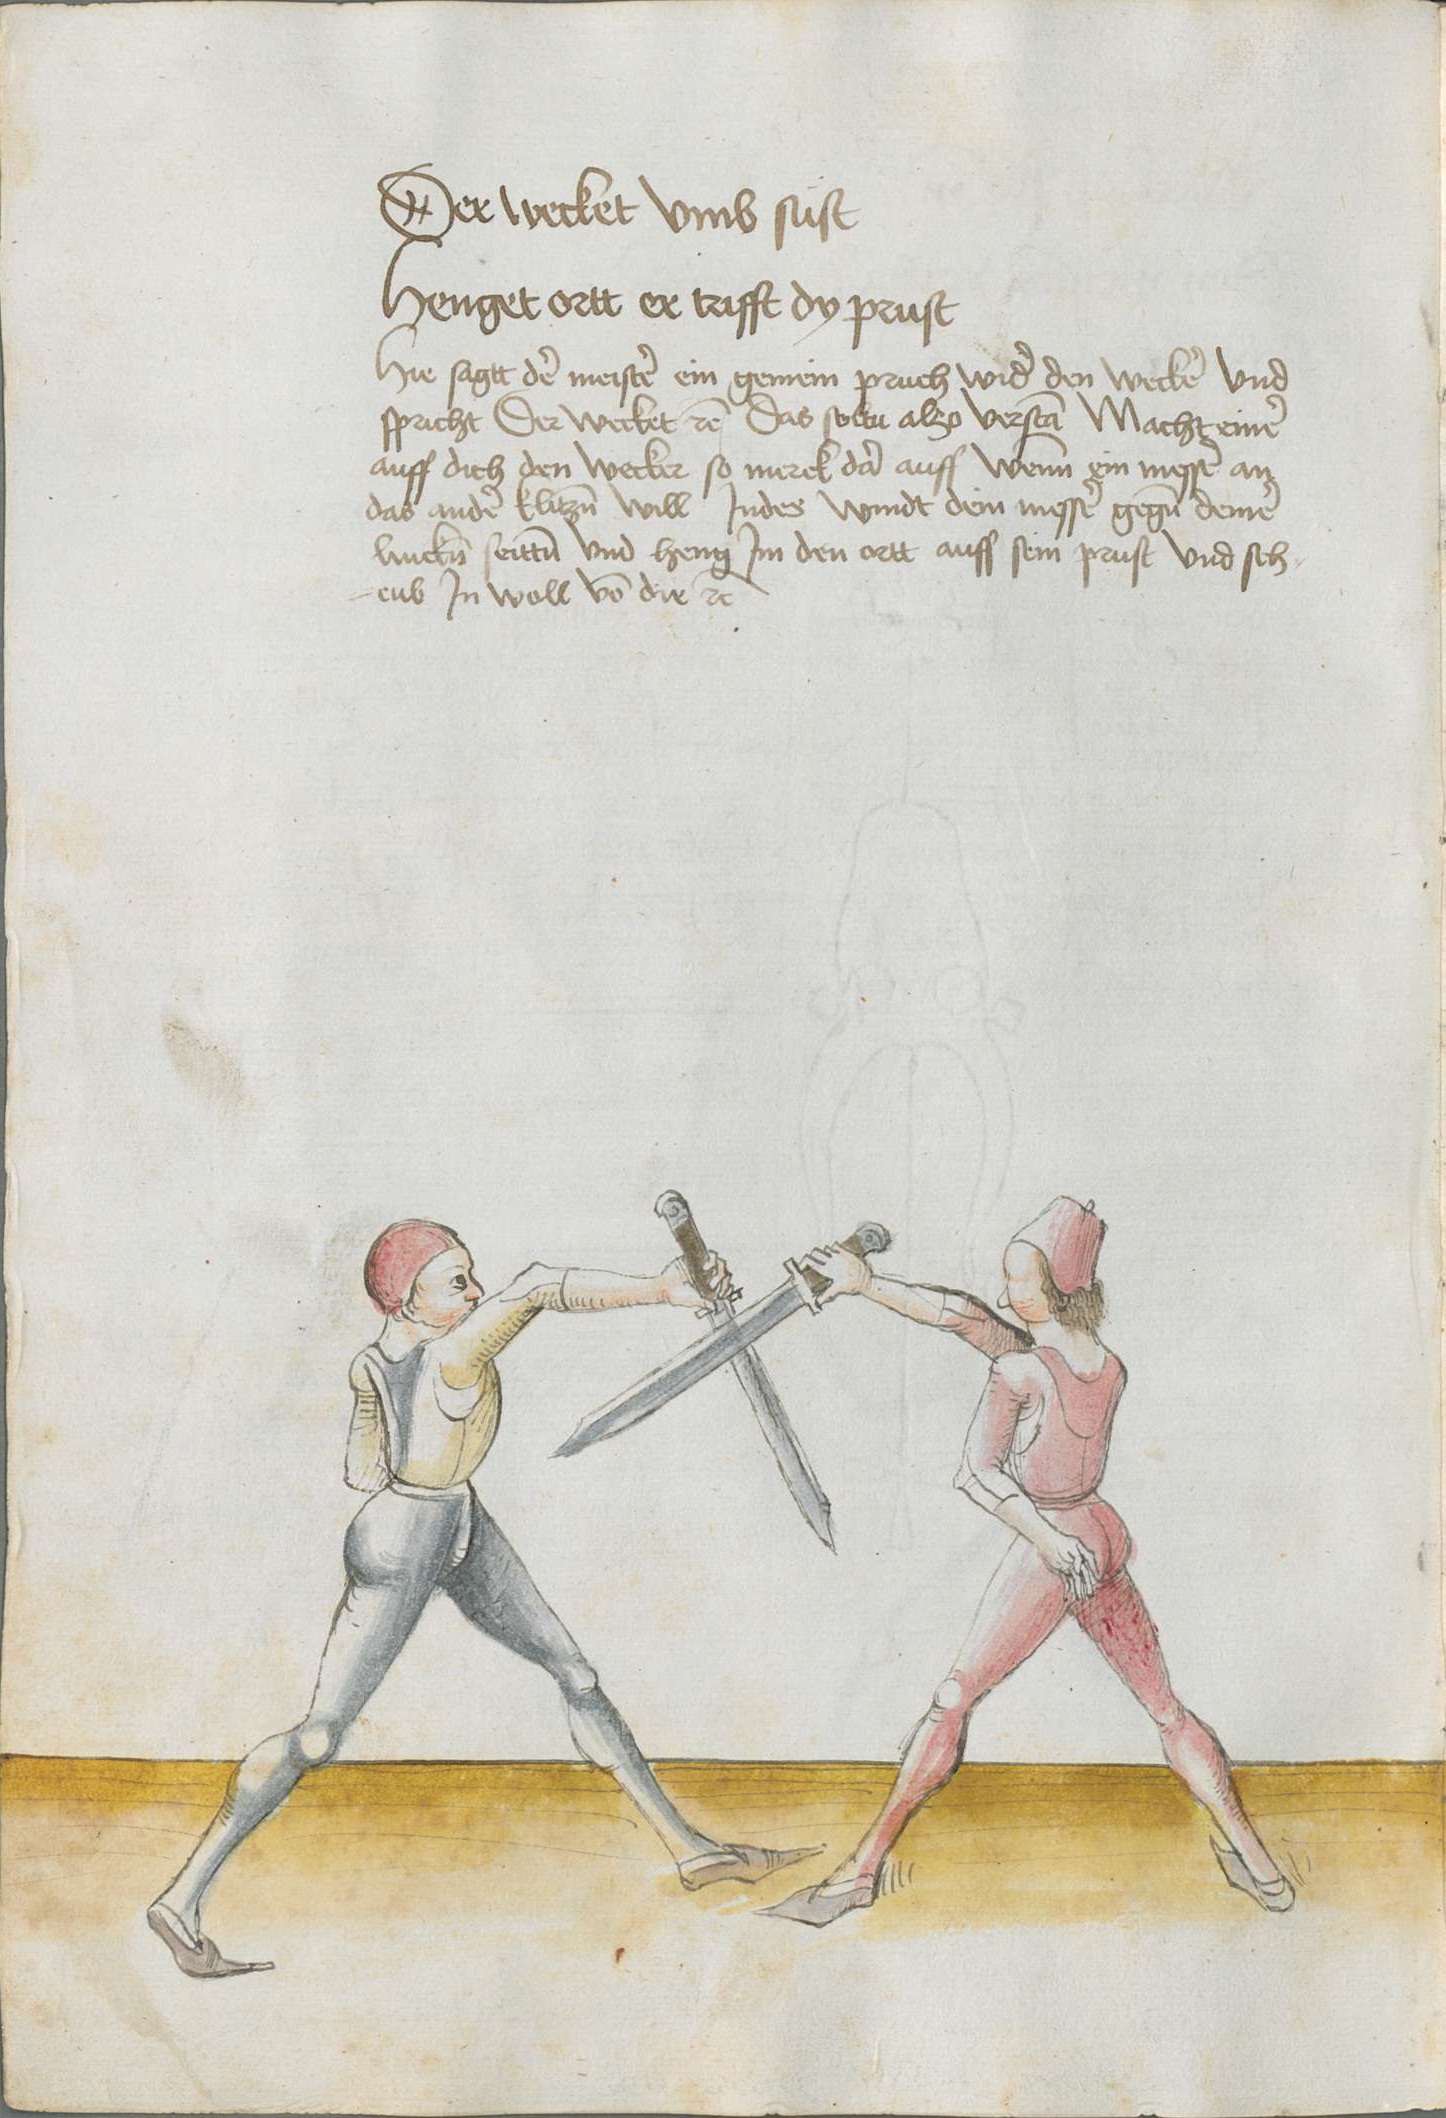 Der wecket vmb sust
Henget ortt er trifft dy prust
Hie sagtt dē meistē ein gemein pruch widē den weckē Vnd
spricht Der wecket rē Das soltu also verstā Macht einē
auff dich den wecker so merck dār auff Wenn ein messē an
das andē klitzn̄ will Indes windt dein messē gegn̄ deinē
linckn̄ seittn̄ vnd heng Im den ortt auff sein prust vnd sch-
-eub In woll vō dir rē